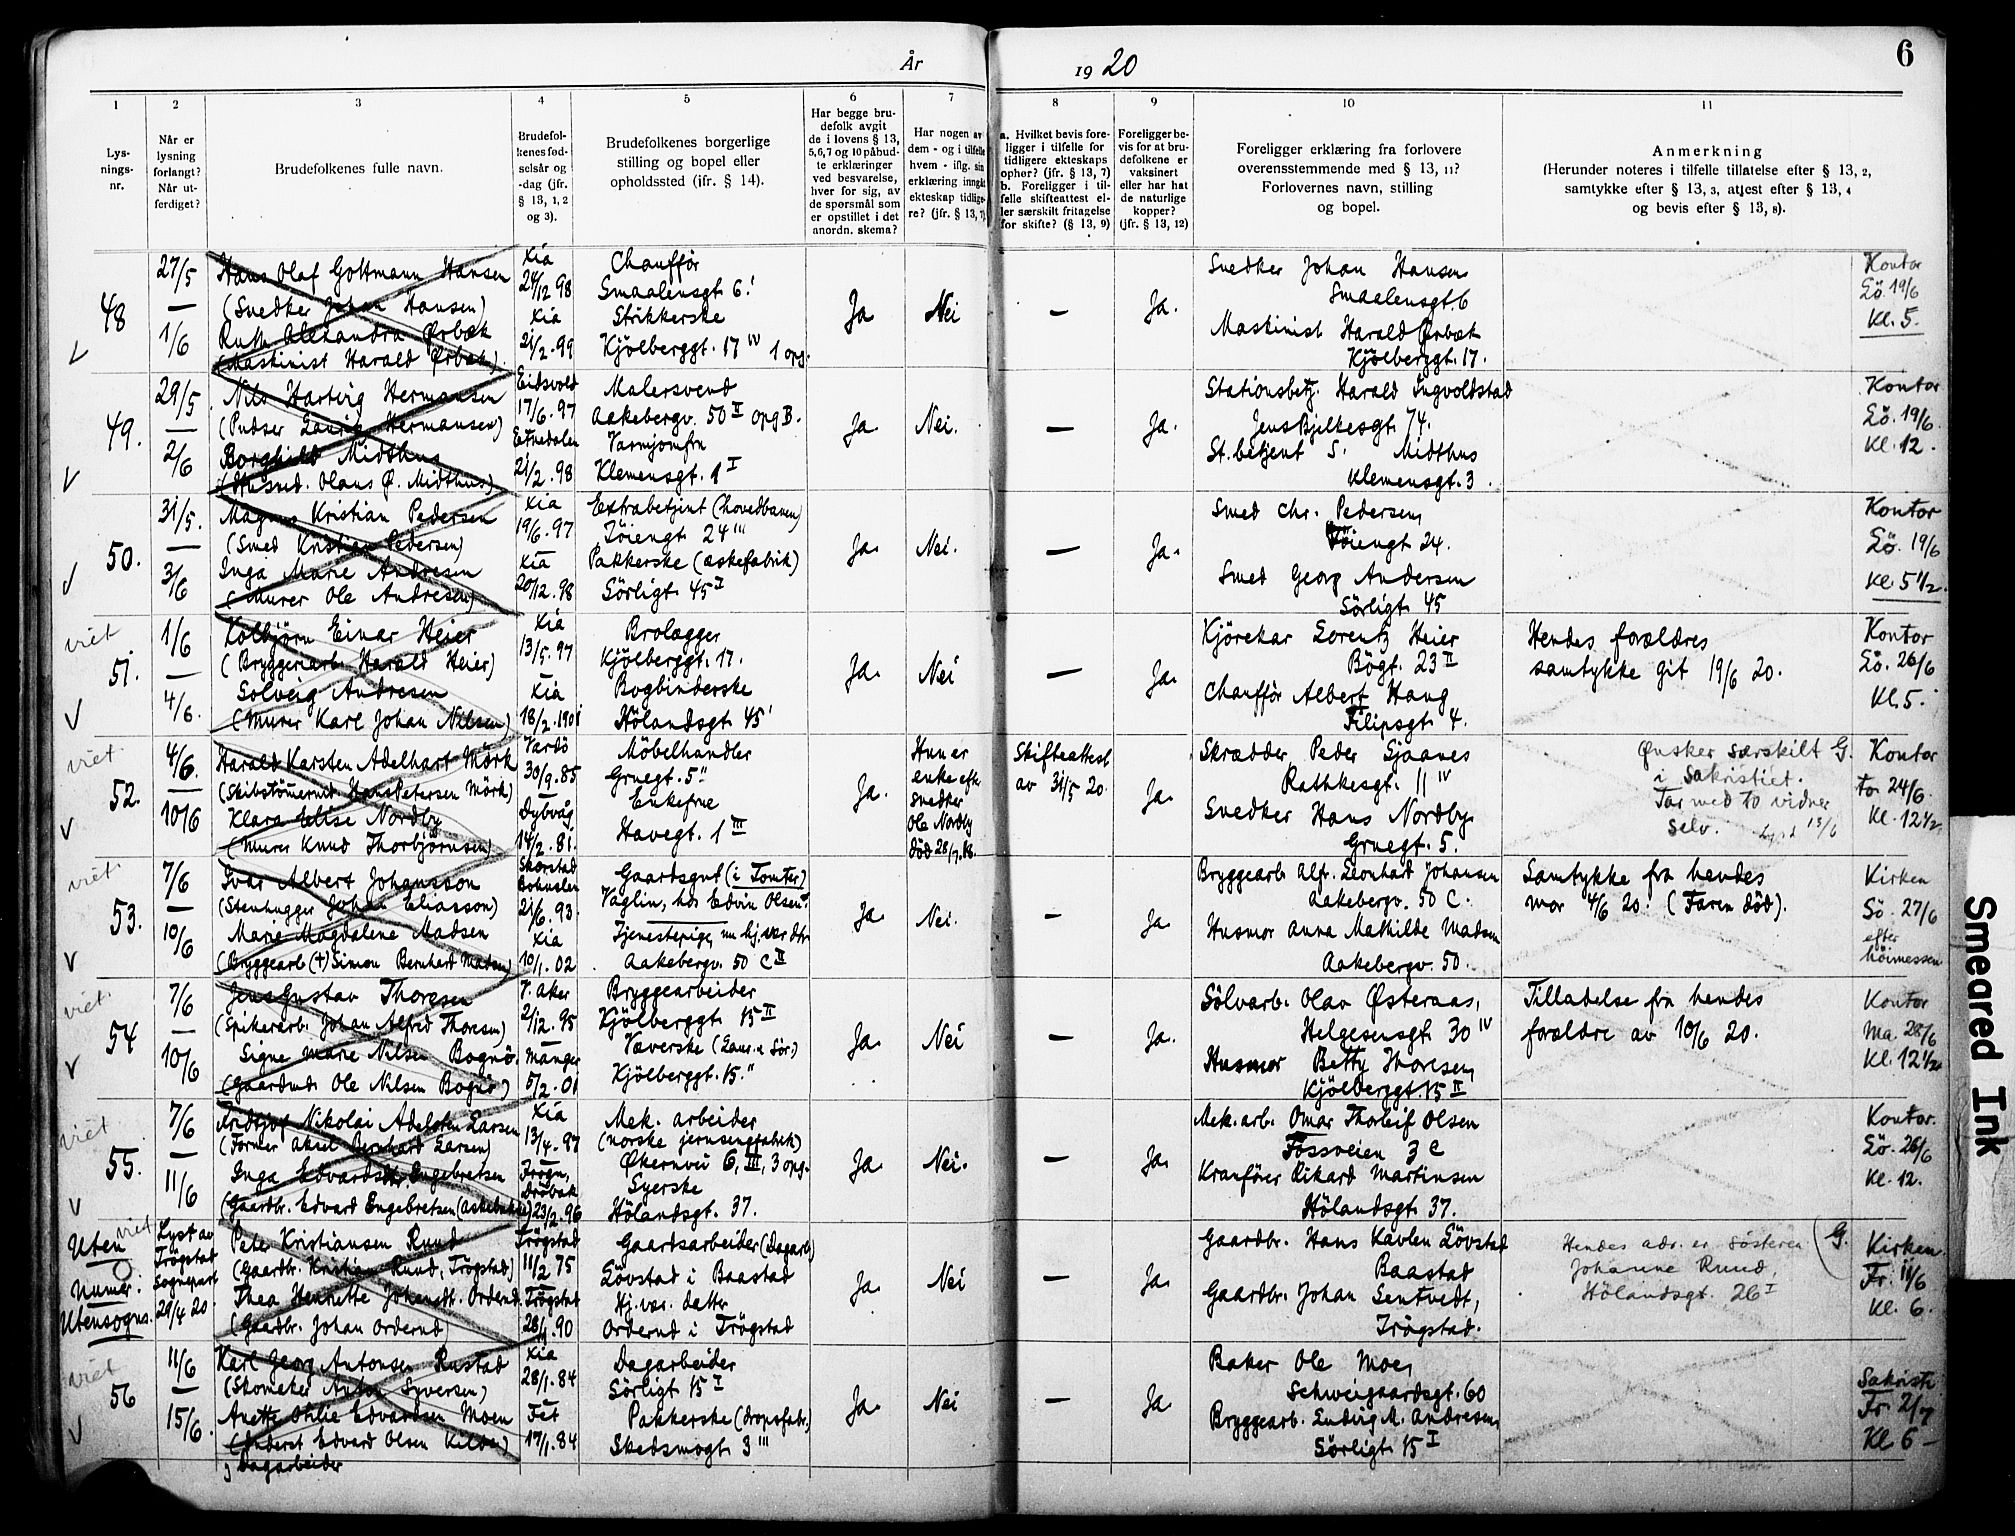 År
1920
6
1
2
3
4
5
6
7
8
9
10
11
Lys-
nings-
nr.
Når er
lysning
forlangt?
Når ut-
ferdiget?
Brudefolkenes fulle navn.
Brudefol-
kenes fød-
selsår og
-dag (jfr.
§ 13, 1, 2
og 3).
Brudefolkenes borgerlige
stilling og bopel eller
opholdssted (ifr. § 14).
Har begge bru-
defolk avgit
de i lovens § 13,
5,6,7 og 10 påbud-
te erklæringer
ved besvarelse,
hver for sig, av
de spørsmål som
er opstillet i det
anordn. skema?
Har nogen av
dem - og i tilfelle
hvem - iflg. sin
erklæring inngåt
ekteskap tidlige-
re? (jfr. § 13, 7)
a. Hvilket bevis fore-
ligger i tilfelle for
tidligere ekteskaps
ophør? (jfr. § 13, 7)
b. Foreligger i til-
felle skifteattest el-
ler særskilt fritagelse
for skifte? (§ 13, 9)
Foreligger be-
vis for at bru-
defolkene er
vaksinert
eller har hat
de naturlige
kopper?
(jfr. § 13, 12)
Foreligger erklæring fra forlovere
overensstemmende med § 13, 11?
Forlovernes navn, stilling
og bopel.
Anmerkning
(Herunder noteres i tilfelle tillatelse efter § 13, 2,
samtykke efter § 13, 3, attest efter § 13, 4
og bevis efter § 13, 8).
48
27/5
—
1/6
Hans Olaf Gottmann Hansen
(Snedker Johan Hansen)
Ruth Alexandra Ørbæk
(Maskinist Harald Ørbæk)
Kia
24/12 98
Kia
21/2.99
Chauffør
Smaalensgt 6 I
Strikkerske
Kjölberggt. 17 IV 1 opg.
Ja
Nei
—
Ja.
Snedker Johan Hansen
Smaalensgt. 6
Maskinist Harald Ørbæk
Kjölberggt. 17.
Kontor
Lö. 19/6
Kl. 5.
49.
29/5
—
2/6
Nils Hartvig Hermansen
(Pudser Lauritz Hermansen)
Borghild Midthus
(Olaus Ø. Midthus)
Eidsvold
17/6.97
Etnedalen
21/2.98
Malersvend
Aakebergv. 50 II opg B.
Varmjomfru
Klemensgt. 1 I
Ja.
Nei.
—
Ja.
Stationsbetj. Harald Ingvoldstad
Jens Bjelkesgt 74.
St. betjent S. Midthus
Klemensgt. 3.
Kontor
Lö. 19/6.
Kl. 12.
50.
31/5.
—
3/6
Magnus Kristian Pedersen
(Smed Kristian Pedersen)
Inga Marie Andresen
(Murer Ole Andresen)
Kia
19/6.97
Kia
20/12.98
Extrabetjent (hovedbanen)
Töiengt 24 III
Pakkerske (æskefabrik)
Sörligt. 45 I
Ja.
Nei.
—
Ja.
Smed Chr. Pedersen,
Töiengt 24.
Smed Georg Andersen
Sörligt. 45
Kontor
Lö. 19/6
Kl. 5 1/2.
viet
51.
1/6
—
4/6.
Kolbjörn Einar Heier
(Bryggeriarb. Harald Heier)
Solveig Andresen
(Murer Karl Johan Nilsen)
Kia
13/5.97
Kia
18/2.1901
Brolægger
Kjölberggt. 17.
Bogbinderske
Hölandsgt. 45 I
Ja.
Nei
—
Ja.
Kjörekar Lorentz Heier
Bögt. 23 II
Chauffør Albert Haug
Filipsgt 4.
Hendes forældres
samtykke git 19/6 20.
Kontor
Lö. 26/6
Kl. 5.
viet
52.
4/6.
—
10/6
Harald Karsten Adelhart Mörk
(Skibstömmermd. Hans Petersen Mörk)
Klara Elise Nordby
(Murer Knud Thorbjörnsen)
Vardö
30/9.85
Dybvåg
14/2.81.
Möbelhandler
Gruegt. 5 II
Enkefrue
Havegt. 1 III
Ja.
Hun er
enke efter
snedker
Ole Nordby
död 28/7.18.
Skifteattest
av 31/5 20.
Ja.
Skrædder Peder Sjaaves
Rathkesgt. 11 IV
Snedker Hans Nordby
Gruegt. 5.
Ønsker særskilt G.
i Sakristiet.
Tar med to vidner
selv. Lyst 13/6
Kontor
to. 24/6.
Kl. 12 1/2.
viet.
53.
7/6
—
10/6
Ivar Albert Johansson
(Stenhugger Johan Eliasson)
Marie Magdalene Madsen
(Bryggearb (+) Simon Bernhard Madsen)
Bohuslen
21/6.93.
Kia
10/1.02
Gaardsgut (i Tomter)
Vaglin, hos Edvin Olsen.
Tjenestepige, nu hj.vær. dtr
Aakebergv. 50 C II
Ja.
Nei.
—
Ja.
Bryggearb Alf. Leonhard Johansen
Aakebergv. 50 C.
Husmor Anna Mathilde Madsen
Aakebergv. 50.
Samtykke fra hendes
mor 4/6 20. (Faren död).
Kirken
Sö. 27/6
efter
höimessen
viet.
54
7/6
—
10/6
Jens Gustav Thoresen
(Spikerarb. Johan Alfred Thoresen)
Signe Marie Nilsen Bognö.
(Gaardmd. Ole Nilsen Bognö)
V. Aker
2/12.95
Manger
5/2.01
Bryggearbeider
Kjölberggt. 15 II
Væverske
Kjölberggt. 15. II
Ja.
Nei
—
Ja.
Sölvarb. Olav Østeraas,
Helgesensgt. 30 IV
Husmor Betty Thoresen,
Kjölberggt. 15 II
Tilladelse fra hendes
forældre av 10/6 20.
Kontor
Ma. 28/6
Kl. 12 1/2.
viet
55.
7/6
—
11/6
Fridtjof Nikolai Adelsten Larsen
(Former Aksel Bernhard Larsen)
Inga Edvardsdtr. Engebretsen
(Gaardbr. Edvard Engebretsen
Kia
13/4.97
Frogn,
Dröbak
23/2.96
Mek. arbeider
(norske jernsengfabrik)
Økernvei 6, III, 3 opg.
Syerske
Hölandsgt. 37.
Ja.
Nei.
—
Ja.
Mek. arb. Omar Thorleif Olsen
Fossveien 3 C
Kranförer Rikard Martinsen
Hölandsgt. 37.
Kontor.
Lö. 26/6
Kl. 12.
viet
Uten
numer.
Utensogns.
Lyst av
Trögstad
Sogneprest
29/4 20.
Peter Kristiansen Ruud
(Gaardbr. Kristian Ruud, Trögstad)
Thea Henriette Johansdt. Orderud
(Gaardbr. Johan Orderud)
Trögstad
11/2 75
Trögstad
28/11.90
Gaardsarbeider (Dagarb.)
Lövstad i Baastad
Hj. vær. datter
Orderud i Trögstad
Ja.
Nei
—
Ja.
Gaardbr. Hans Kavlen Lövstad
Baastad
Gaardbr. Johan Sentvedt,
Trögstad.
Hendes adr. er Sösteren
Johanne Ruud,
Hölandsgt. 26 I
G.
Kirken.
Fr. 11/6
Kl. 6.
viet
56
11/6
—
15/6.
Karl Georg Antonsen Rustad
(Skomaker Anton Syversen)
Anette Othlie Edvardsen Moen
Edvard Olsen
Dagarbeider
Kia
28/1.84
Fet
17/1.84
Dagarbeider
Sörligt. 15 I
Pakkerske (dropsfabr.)
Skedsmogt. 3 III
Ja.
Nei
—
Ja
Baker Ole Moe,
Schweigaardsgt. 60
Bryggearb. Ludvig M. Andresen,
Sörligt. 15 I
Sakristi
Fr. 2/7
Kl 6 —
Smeared Ink